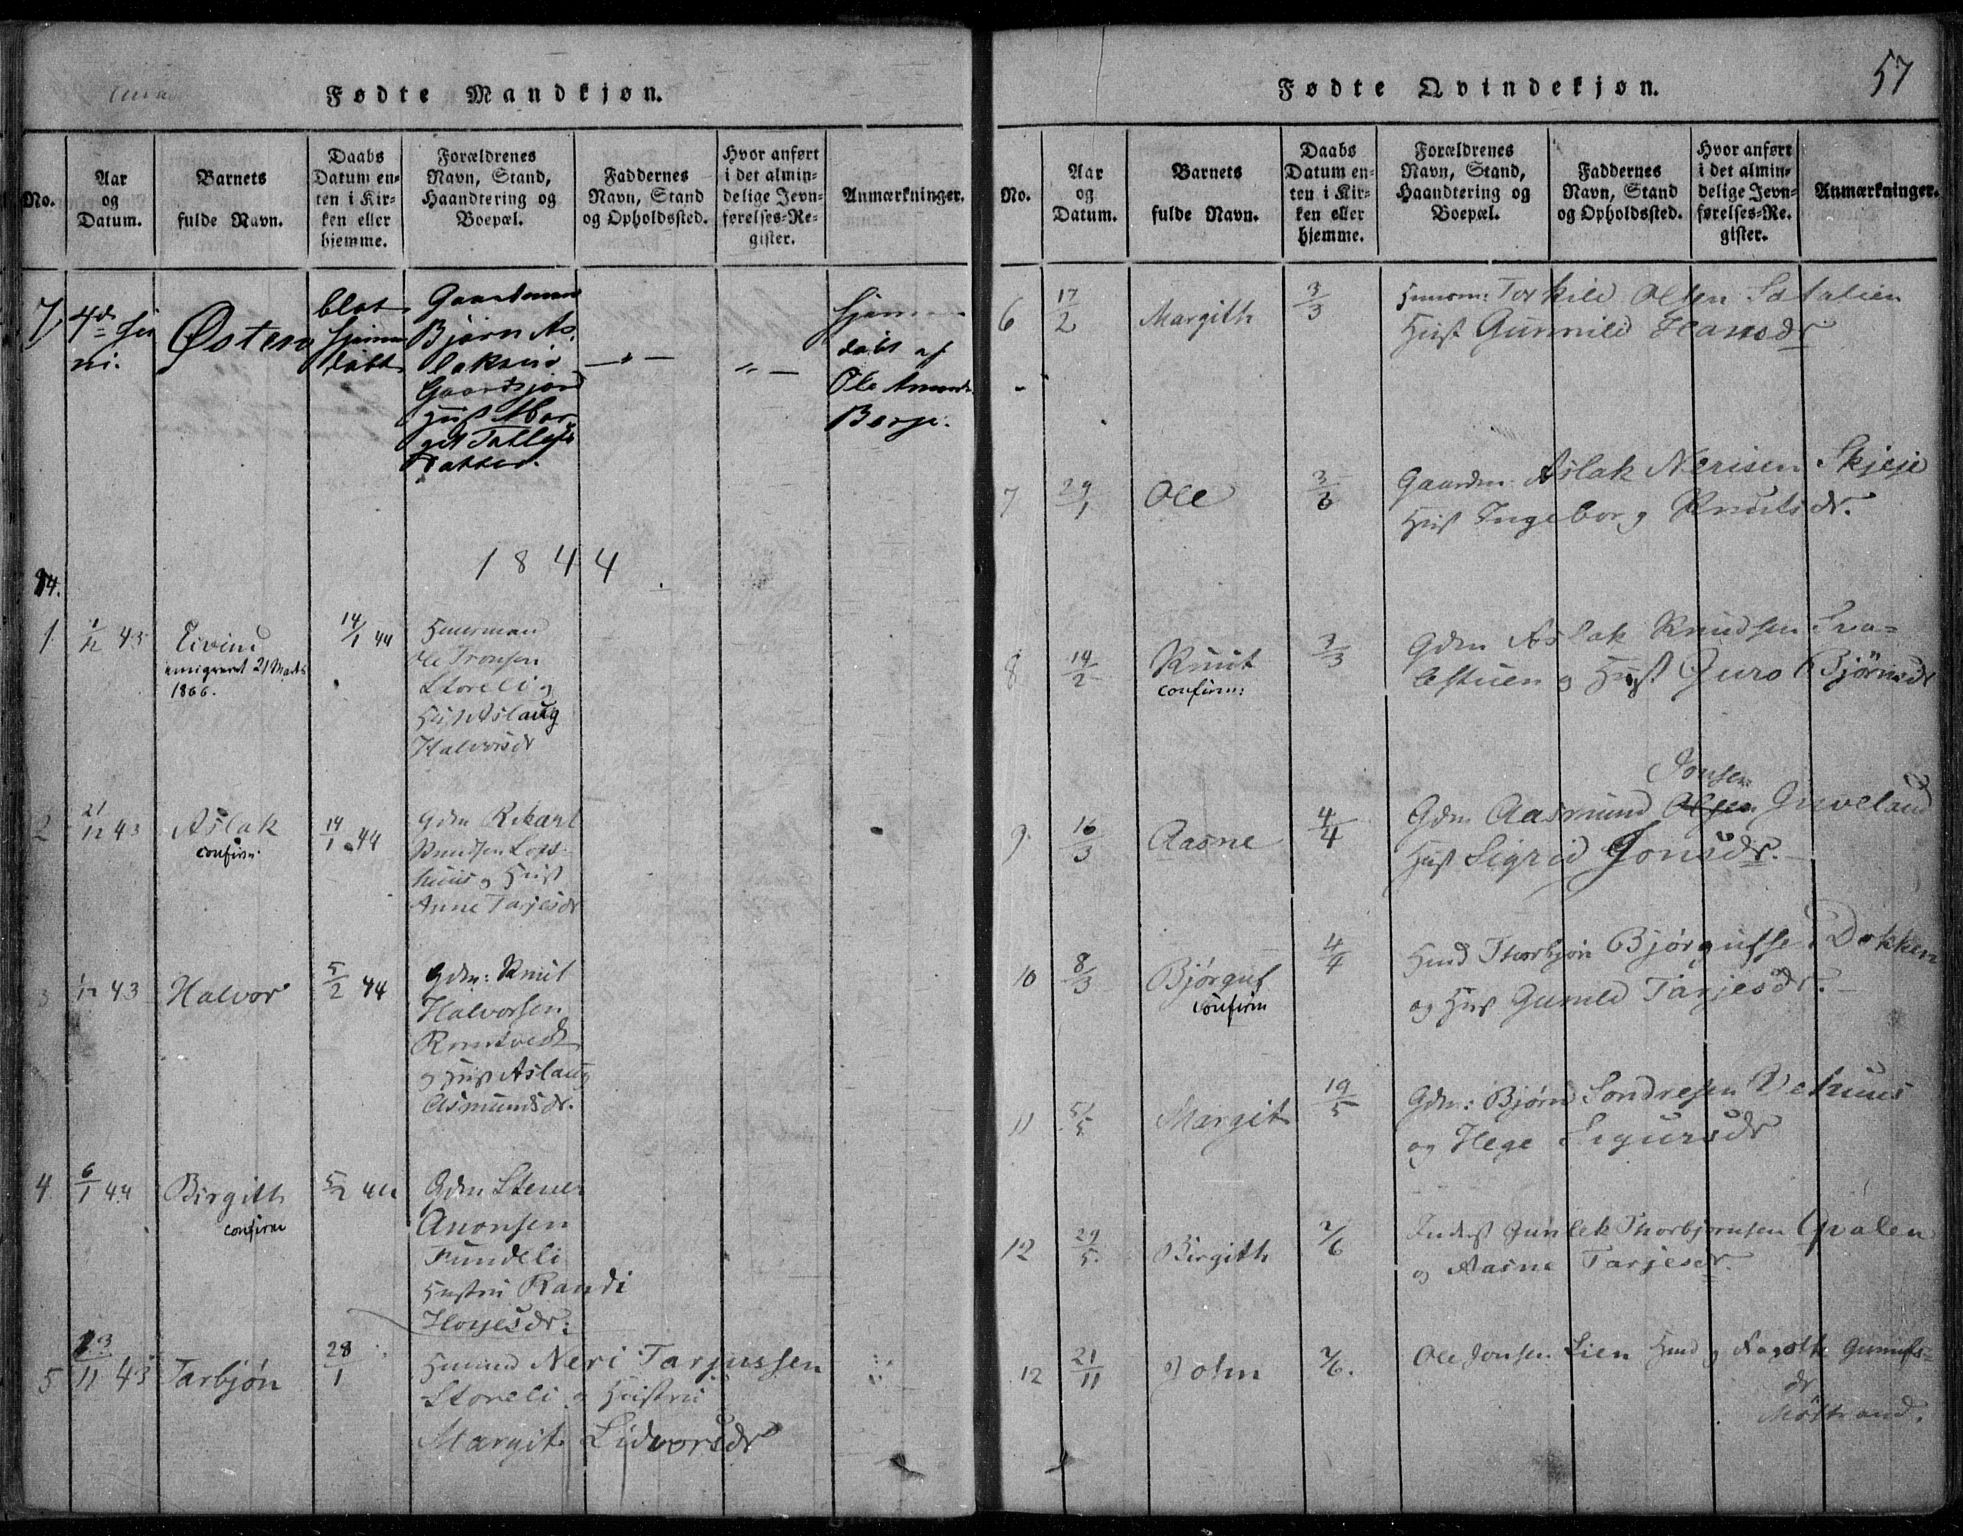 Fødte Mandkjøn.
No.
Aar
og
Datum.
Barnets
fulde Navn.
Daabs
Datum en-
ten i Kir-
ken eller
hjemme.
Forældrenes
Navn, Stand,
Haandtering og
Boepæl.
Faddernes
Navn, Stand
og Opholdssted.
Hvor anført
i det almin-
delige Jevn-
førelses-Re-
gister.
Anmærkninger.
7
Østen
blot
hjemme
døbt
Gaardmand
Bjørn As-
laksen
Hust. Mar-
git
Datter.
Hjemme
døbt af
Ole
Berge.
1844
1 1/12 43 Eivind 14/1 44
emigreret 21 Marts
1866.
Huusmand
Ole Tronsen
Storeli og
Hust Aslaug
Halvorsdr
2 21/12 43 Aslak 14/1 44
confirm.
Gdm Rikard
Knudsen
huus og Hust
Anne Tarjesdr
3 1/12 43 Halvor 5/2 44
Gdm: Knut
Halvorsen
Romtvedt
og Hust Aslaug
Asmundsdr.
4 6/1 44 Birgith 5/2 44
confirm
Gdm Stener
Anonsen
Fundeli
Hustru Randi
5 11 43 Tarbjön 28/1
Huusmd Neri Tarjussen
Storeli og Hustru
Margit Lidvorsdr
57
Fødte Qvindekjøn.
No.
Aar
og
Datum.
Barnets
fulde Navn.
Daabs
Datum en-
ten i Kir-
ken eller
hjemme.
Forældrenes
Navn, Stand,
Haandtering og
Boepæl.
Faddernes
Navn, Stand
og Opholdssted.
Hvor anført
i det almin-
delige Jevn-
førelses-Re-
gister.
Anmærkninger.
6 17/2 Margith 3/3 Torkild Olsen
Hust Gunnild Hansdr
7 29/1 Ole 3/3 Gaardm. Aslak Nerisen Skjeje
Hust Ingeborg Knutsdr.
8 14/2 Knut 3/3 Gdm Aslak Knudsen
confirm:
og Hust Guro Bjørnsdr
Jonsen
9. 16/3 Aasne 4/4 Gdm Aasmund Olsen Juveland
Hust Sigrid Jonsdr.
10 8/3 Bjørguf 4/4 Hmd Thorbjøn Bjørgufsen Dokken
confirm
og Hust Gunild Tarjesdr.
11 5/5 Margit 19/5 Gdm: Bjørn Sondresen Vehuus
og Hege Sigursdr
12 29/5 Birgith 2/6 Inderst Gunlek Thorbjørnsen Qvalen
og Aasne Tarjesdr.
12 21/11 John 2/6. Ole Jonsen Lien Hmd og Gunufs-
dr
Møstrand.